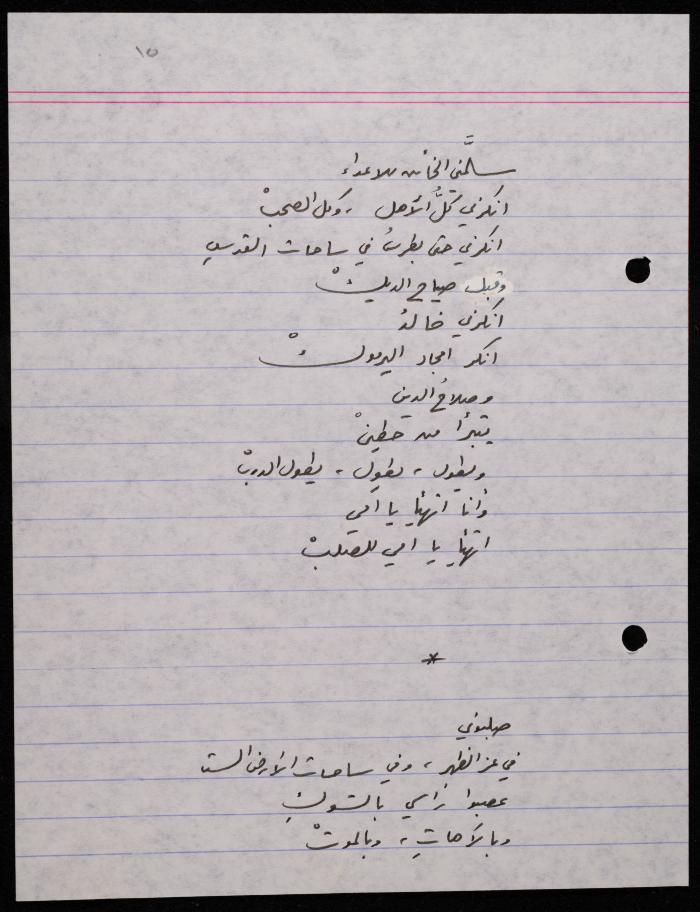 ١٥
سلَّمني الخائن للاعداء
انكرني كلُّ الأهل ، وكل الصحبْ
انكرني حتى بطرسُ في ساحات القدسِ
وقبل صياح الديكْ
انكرني خالدُ
انكر امجاد اليرموكْ
وصلاحُ الدين
يتبرأ من حطينْ
ويطول ، يطول ، يطول الدربْ
وأنا اتهيأ يا امي
اتهيأ يا امي للصلبْ
*
صلبوني
في عز الظهر ، وفي ساحات الأرض الست
عصبوا رأسي بالشوكِ
وبالآهاتِ ، وبالموتْ